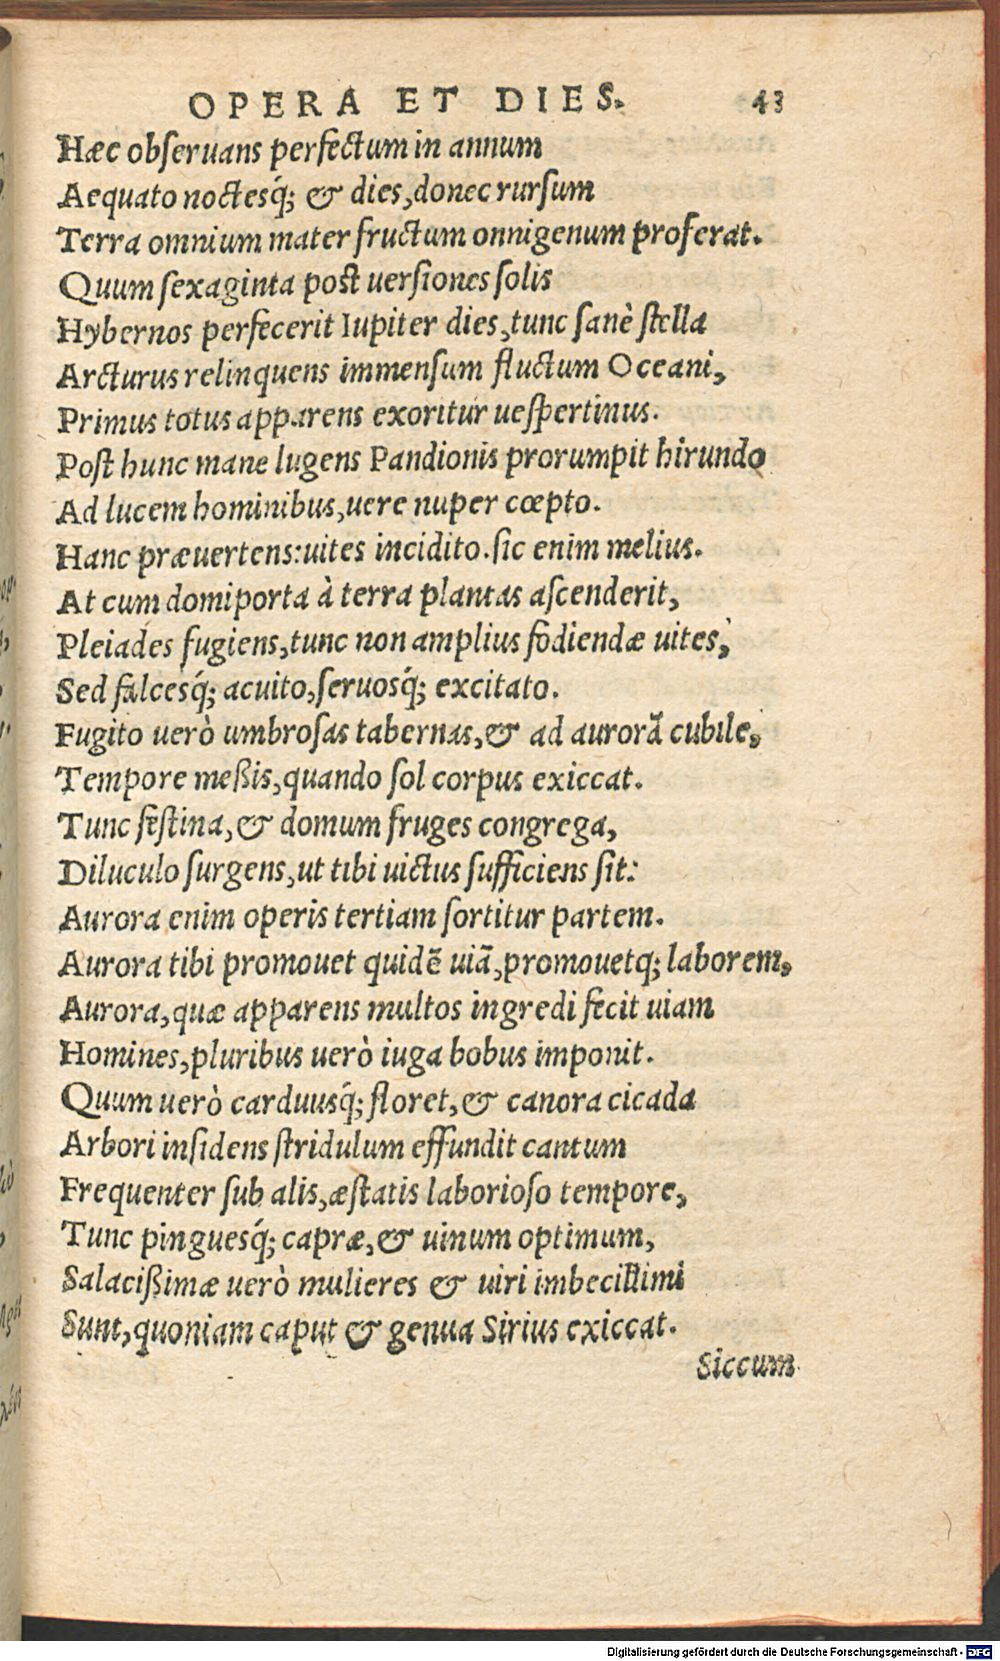 OPERA ET DIES. 43
Hæc obſeruans perfectum in annum
Aequato noctesq́; & dies, donec rurſum
Terra omnium mater fructum onnigenum proferat.
Quum ſexaginta poſt uerſiones ſolis
Hybernos perfecerit Iupiter dies, tunc ſanè ſtella
Arcturus relinquens immenſum fluctum Oceani,
Primus totus apparens exoritur ueſpertinus.
Poſt hunc mane lugens Pandionis prorumpit hirundo
Ad lucem hominibus, uere nuper cœpto.
Hanc præuertens: uites incidito. ſic enim melius.
At cum domiporta à terra plantas aſcenderit,
Pleiades fugiens, tunc non amplius fodiendæ uites,
Sed falcesq́; acuito, ſeruosq́; excitato.
Fugito uerò umbroſas tabernas, & ad aurorã cubile,
Tempore meßis, quando ſol corpus exiccat.
Tunc feſtina, & domum fruges congrega,
Diluculo ſurgens, ut tibi uictus ſufficiens ſit:
Aurora enim operis tertiam ſortitur partem.
Aurora tibi promouet quidẽ uiã, promouetq; laborem,
Aurora, quæ apparens multos ingredi fecit uiam
Homines, pluribus uerò iuga bobus imponit.
Quum uerò carduusq́; floret, & canora cicada
Arbori inſidens ſtridulum effundit cantum
Frequenter ſub alis, æſtatis laborioſo tempore,
Tunc pinguesq́; capræ, & uinum optimum,
Salacißimæ uerò mulieres & uiri imbecillimi
Sunt, quoniam caput & genua Sirius exiccat.
Siccum
Digitalisierung gefördert durch die Deutsche Forschungsgemeinschaft - DFG